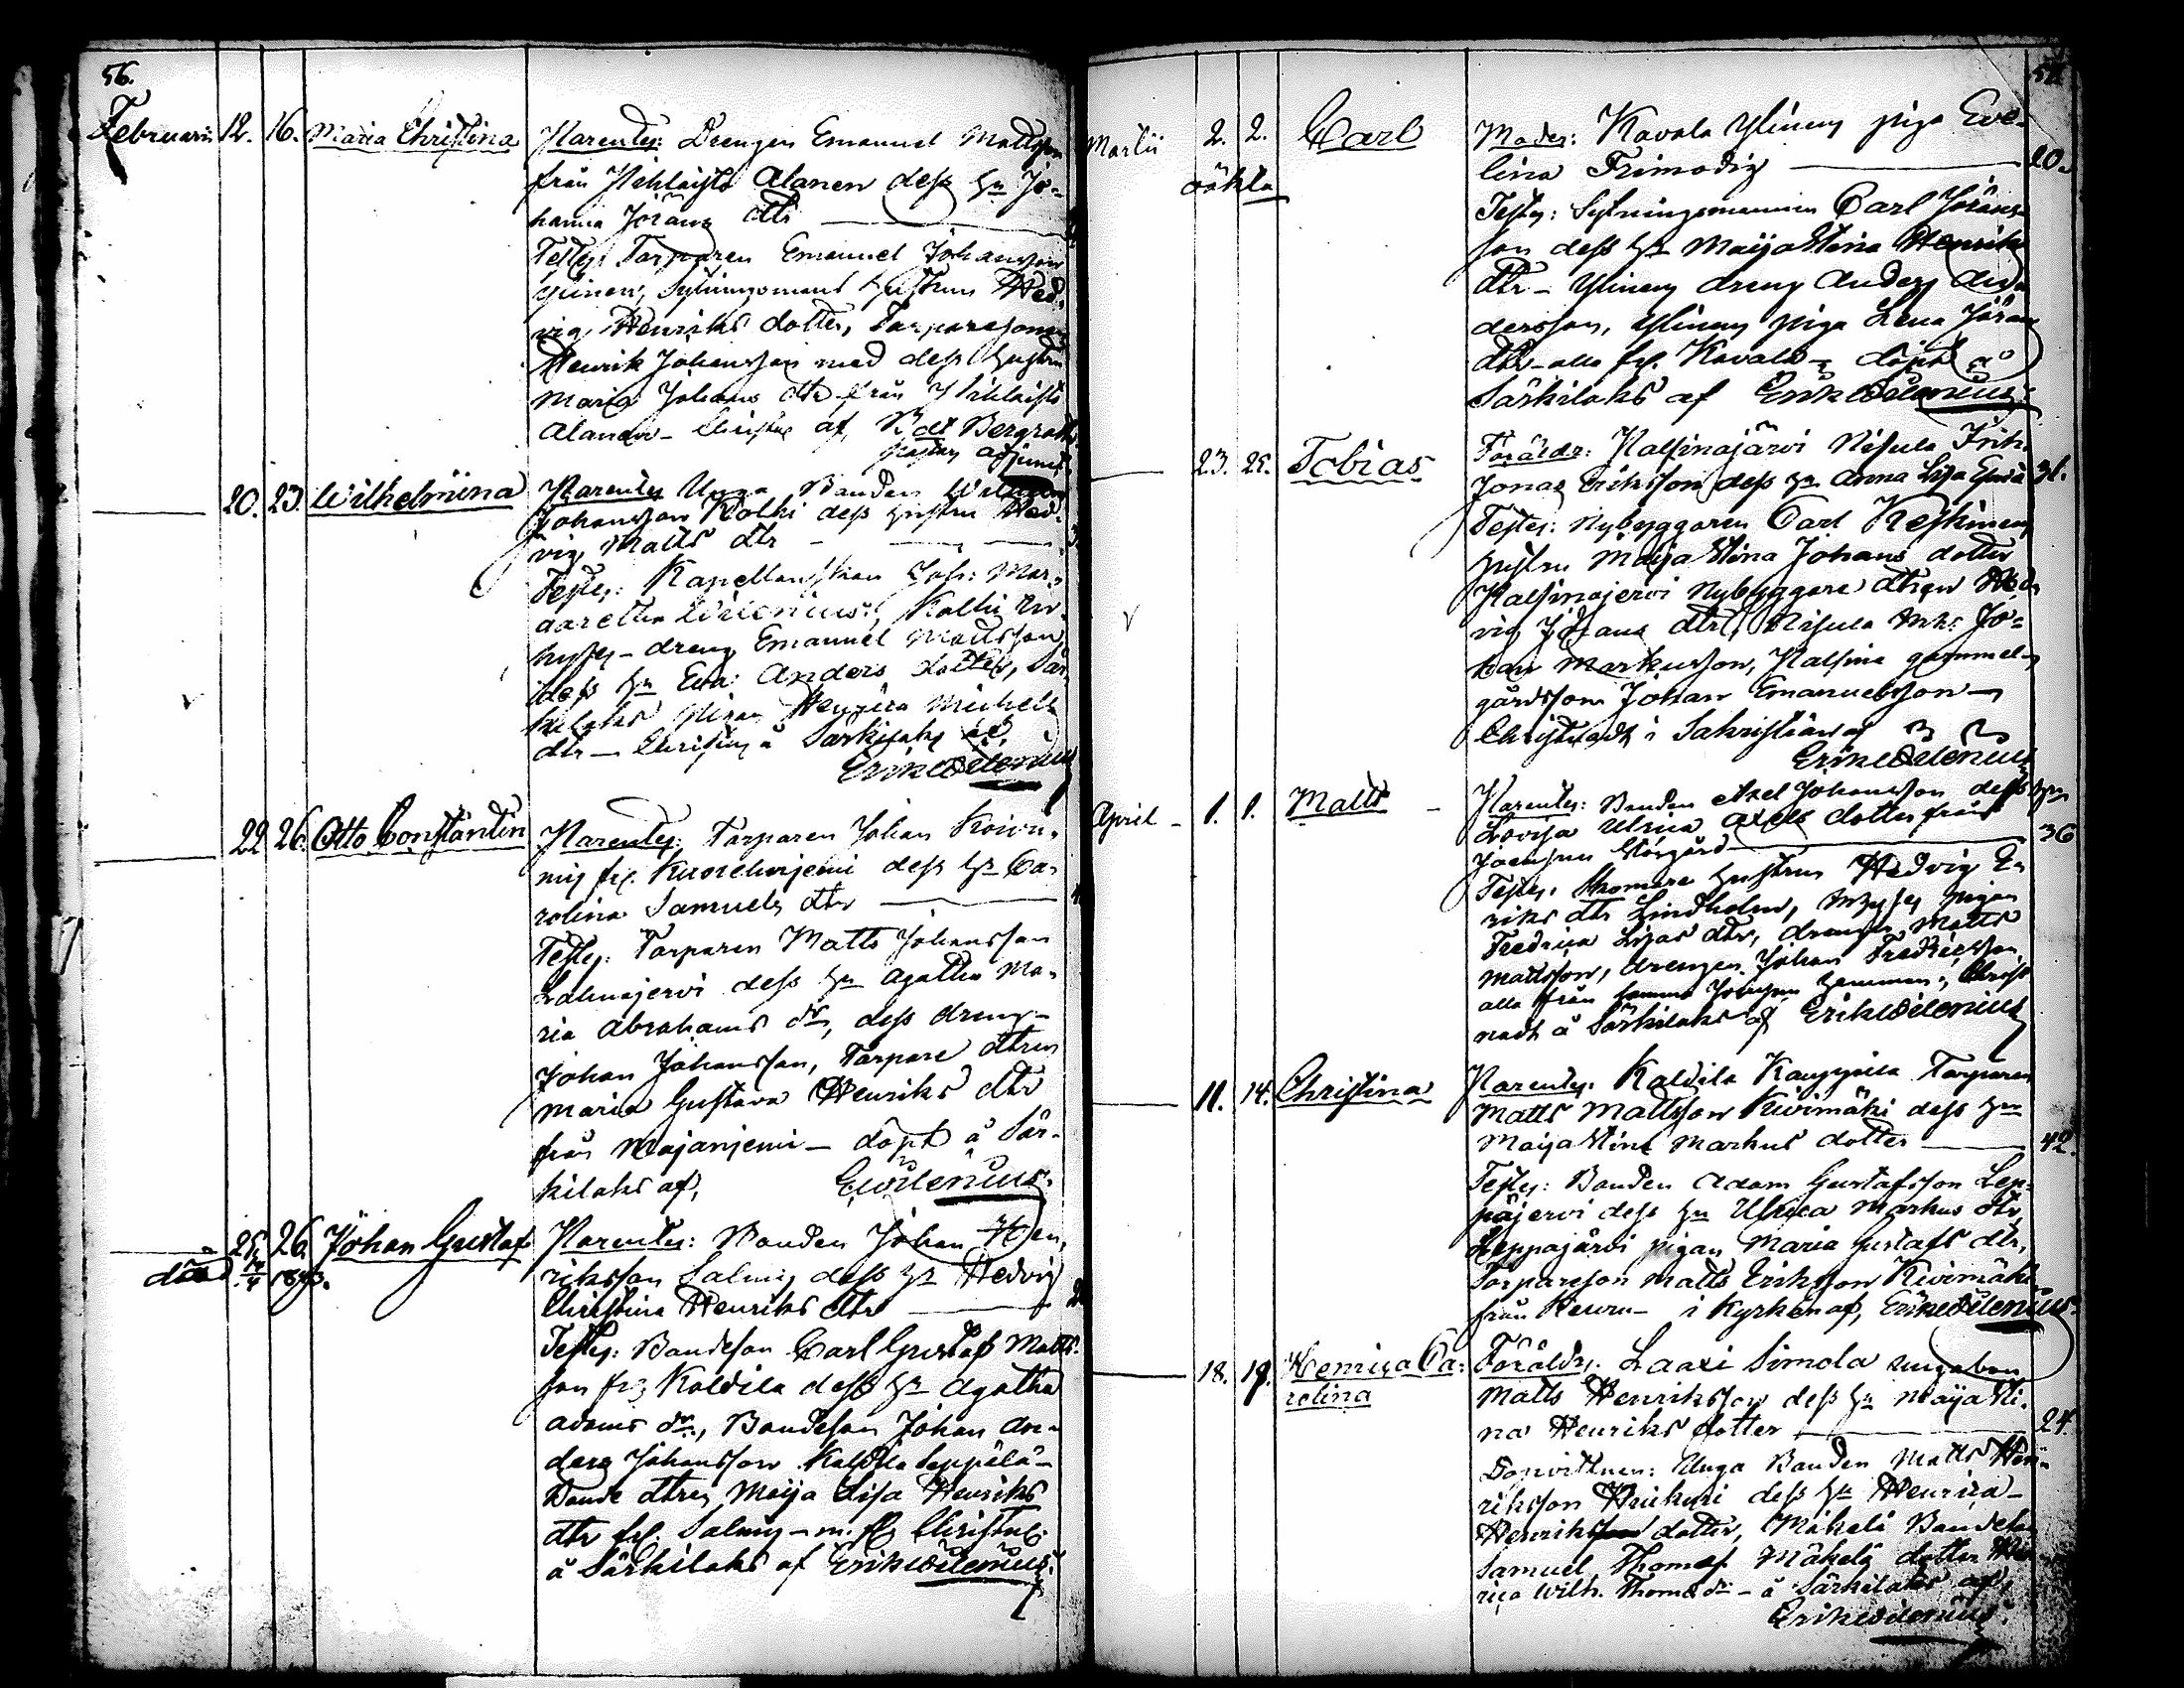 56.
Februarii 12. 16. Maria Christina Parentes: Drengen Emanuel Mattsson
från Alanen dess Hu Jo-
hanna Jörans dtr
Testes: Torparen Emanuel Johansson
Ylinen, Sytningsmans hustrun Hed-
vig Henriks dotter, Torparesonen
Henrik Johansson med dess hustru
Maria Johans dtr från
Alanen - Christnt af, Bergroth
adjunct.
20. 23. Wilhelmina Parentes Unga Bonden
Johansson Kolki dess hustru Hed-
vig Matts dtr
Testes: Kapellanskan Joh: Mar-
garetha Wilenius,
dreng Emanuel Mattsson
dess Hu Eva Anders dotter, Sär-
kilaks pigan Henrica Michels
dtr - Christnt å Särkilaks af,
Erik Wilenius
22 26. Otto Constantin Parentes: Torparen Johan Koivu-
niemi dess Hu Ca-
rolina Samuels dtr
Testes: Torparen Matts Johansson
dess Hu Agatha Ma-
ria Abrahams dr, dess dreng
Johan Johansson, Torpare dtren
Maria Gustava Henriks dtr
från Majaniemi - döpt å Sär-
kilaks af, E. Wilenius.
25. 26. Johan Gustaf Parentes: Bonden Johan Hen-
död 1843. riksson Salmis dess Hu Hedvig
Christina Henriks dtr
Testes: Bondeson Carl Gustaf Matts-
son frn Koldila dess Hu Agatha
Adams dr., Bondeson Johan An-
ders Johansson Koldila Seppälä -
Bonde dtren Maija Lisa Henriks
dtr frn. Salmis - m. fl. Christnt.
å Särkilaks af Erik Wilenius.
Martii 2. 2. Carl Moder: Kavala Ylinens piga Eve-
oäkta lina Frimodig 20.
Testes: Sytningsmannen Carl Jörans-
son dess Hu Maija Stina Henriks
dtr - Ylinens dreng Anders An-
dersson, Ylinens piga Lena Jörans
dtr - alla frn. Kavala - döpt å
Särkilaks af Erik Wilenius.
23. 25. Tobias Föräldr: Palsinajärvi Nisula
Jonas Eriksson dess Hu. Anna Lisa 31.
Testes: Nybyggaren Carl Keskinens
hustru Maija Stina Johans dotter
Palsinajervi Nybyggare dtren Hed-
vig Johans dtr, Nisula Jo-
han Markusson, Palsina gammel-
gårdsson Johan Emanuelsson -
Christnadt i Sakristian af
Erik Wilenius
April 1. 1. Matts Parentes: Bonden Axel Johansson dess Hu
Lovisa Ulrica Axels dotter från
Storgård 36
Testes: Skomare hustrun Hedvig E-
riks dtr Lindholm, pigan
Fredrica Lisas dtr, drengen Matts
Mattsson, drengen Johan Fredriksson
alla från samma hemman, Christ-
nadt å Särkilaks af Erik Wilenius
11. 14. Christina Parentes. Koldila Kauppila Torparen
Matts Mattsson Kivimäki dess Hu
Maija Stina Markus dotter 42.
Testes: Bonden Adam Gustafsson Lep-
päjervi dess Hu Ulrica Markus dtr,
Leppäjärvi pigan Maria Gustafs dtr,
Torpareson Matts Eriksson Kivimäki
från Keuru - i Kyrkan af, Erik Wilenius.
18. 19. Henrica Ca- Föräldr. Laaxi Simola
rolina Matts Henriksson dess Hu Maija Sti-
na Henriks dotter 24.
Dopvittnen: Unga Bonden Matts Hen-
riksson dess Hu Henrica
Henriks dotter, Mäkelä Bondeson
Samuel Thomas Mäkelä dotter Hen-
rica Wilh. Thomas dr - å Särkilaks af,
Erik Wilenius.